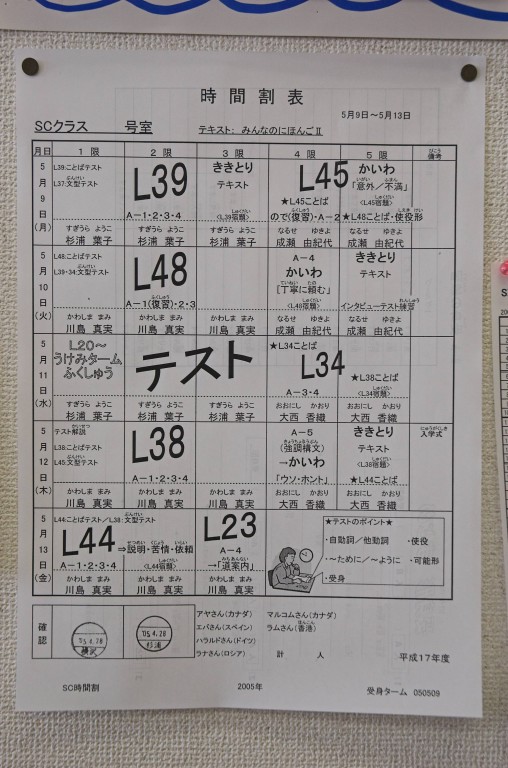 時間割表
5月9日～5月13日
SCクラス 号室 テキスト: みんなのにほんごⅡ
月日 1限 2限 3限 4限 5限 備考
びこう
5月9日(月)
L39:ことばテスト
L37:文型テスト
ぶんけい
L39
A-1・2・3・4
ききとり
テキスト
《L39宿題》
しゅくだい
L45
★L45ことば
ので(復習)・A-2
ふくしゅう
かいわ
「意外/不満」
いがい ふまん
《L45宿題》
しゅくだい
★L48ことば・使役形
しえき けい
すぎうら ようこ すぎうら ようこ すぎうら ようこ なるせ ゆきよ なるせ ゆきよ
杉浦 葉子 杉浦 葉子 杉浦 葉子 成瀬 由紀代 成瀬 由紀代
5月10日(火)
L48:ことばテスト
L39・34:文型テスト
ぶんけい
L48
A-1(復習)・2・3
ふくしゅう
A-4
かいわ
「丁寧に頼む」
ていねい たの
《L48宿題》
しゅくだい
ききとり
テキスト
インタビューテスト練習
れんしゅう
かわしま まみ かわしま まみ かわしま まみ なるせ ゆきよ なるせ ゆきよ
川島 真実 川島 真実 川島 真実 成瀬 由紀代 成瀬 由紀代
5月11日(水)
L20～
うけみターム
ふくしゅう
テスト
★L34ことば
L34
A-3・4
★L38ことば
《L34宿題》
しゅくだい
すぎうら ようこ すぎうら ようこ すぎうら ようこ おおにし かおり おおにし かおり
杉浦 葉子 杉浦 葉子 杉浦 葉子 大西 香織 大西 香織
5月12日(木)
テスト解説
かいせつ
L38:ことばテスト
L45:文型テスト
ぶんけい
L38
A-1・2・3・4
A-5
(強調構文)
きょうちょうこうぶん
→かいわ
「ウソ・ホント」
ききとり
テキスト
《L38宿題》
しゅくだい
★L44ことば
入学式
にゅうがくしき
かわしま まみ かわしま まみ かわしま まみ おおにし かおり おおにし かおり
川島 真実 川島 真実 川島 真実 大西 香織 大西 香織
5月13日(金)
L44:ことばテスト/L38:文型テスト
ぶんけい
L44
A-1・2・3・4
⇒説明・苦情・依頼
せつめい くじょう いらい
《L44宿題》
しゅくだい
L23
A-4
→「道案内」
みちあんない
かわしま まみ かわしま まみ かわしま まみ
川島 真実 川島 真実 川島 真実
★テストのポイント★
・自動詞/他動詞 ・使役
・～ために/～ように ・可能形
・受身
確認
'05.4.28
横沢
'05.4.28
杉浦
アヤさん(カナダ) マルコムさん(カナダ)
エバさん(スペイン) ラムさん(香港)
ほんこん
ハラルドさん(ドイツ)
ラナさん(ロシア) 計 人
平成17年度
SC時間割 2005年 受身ターム 050509